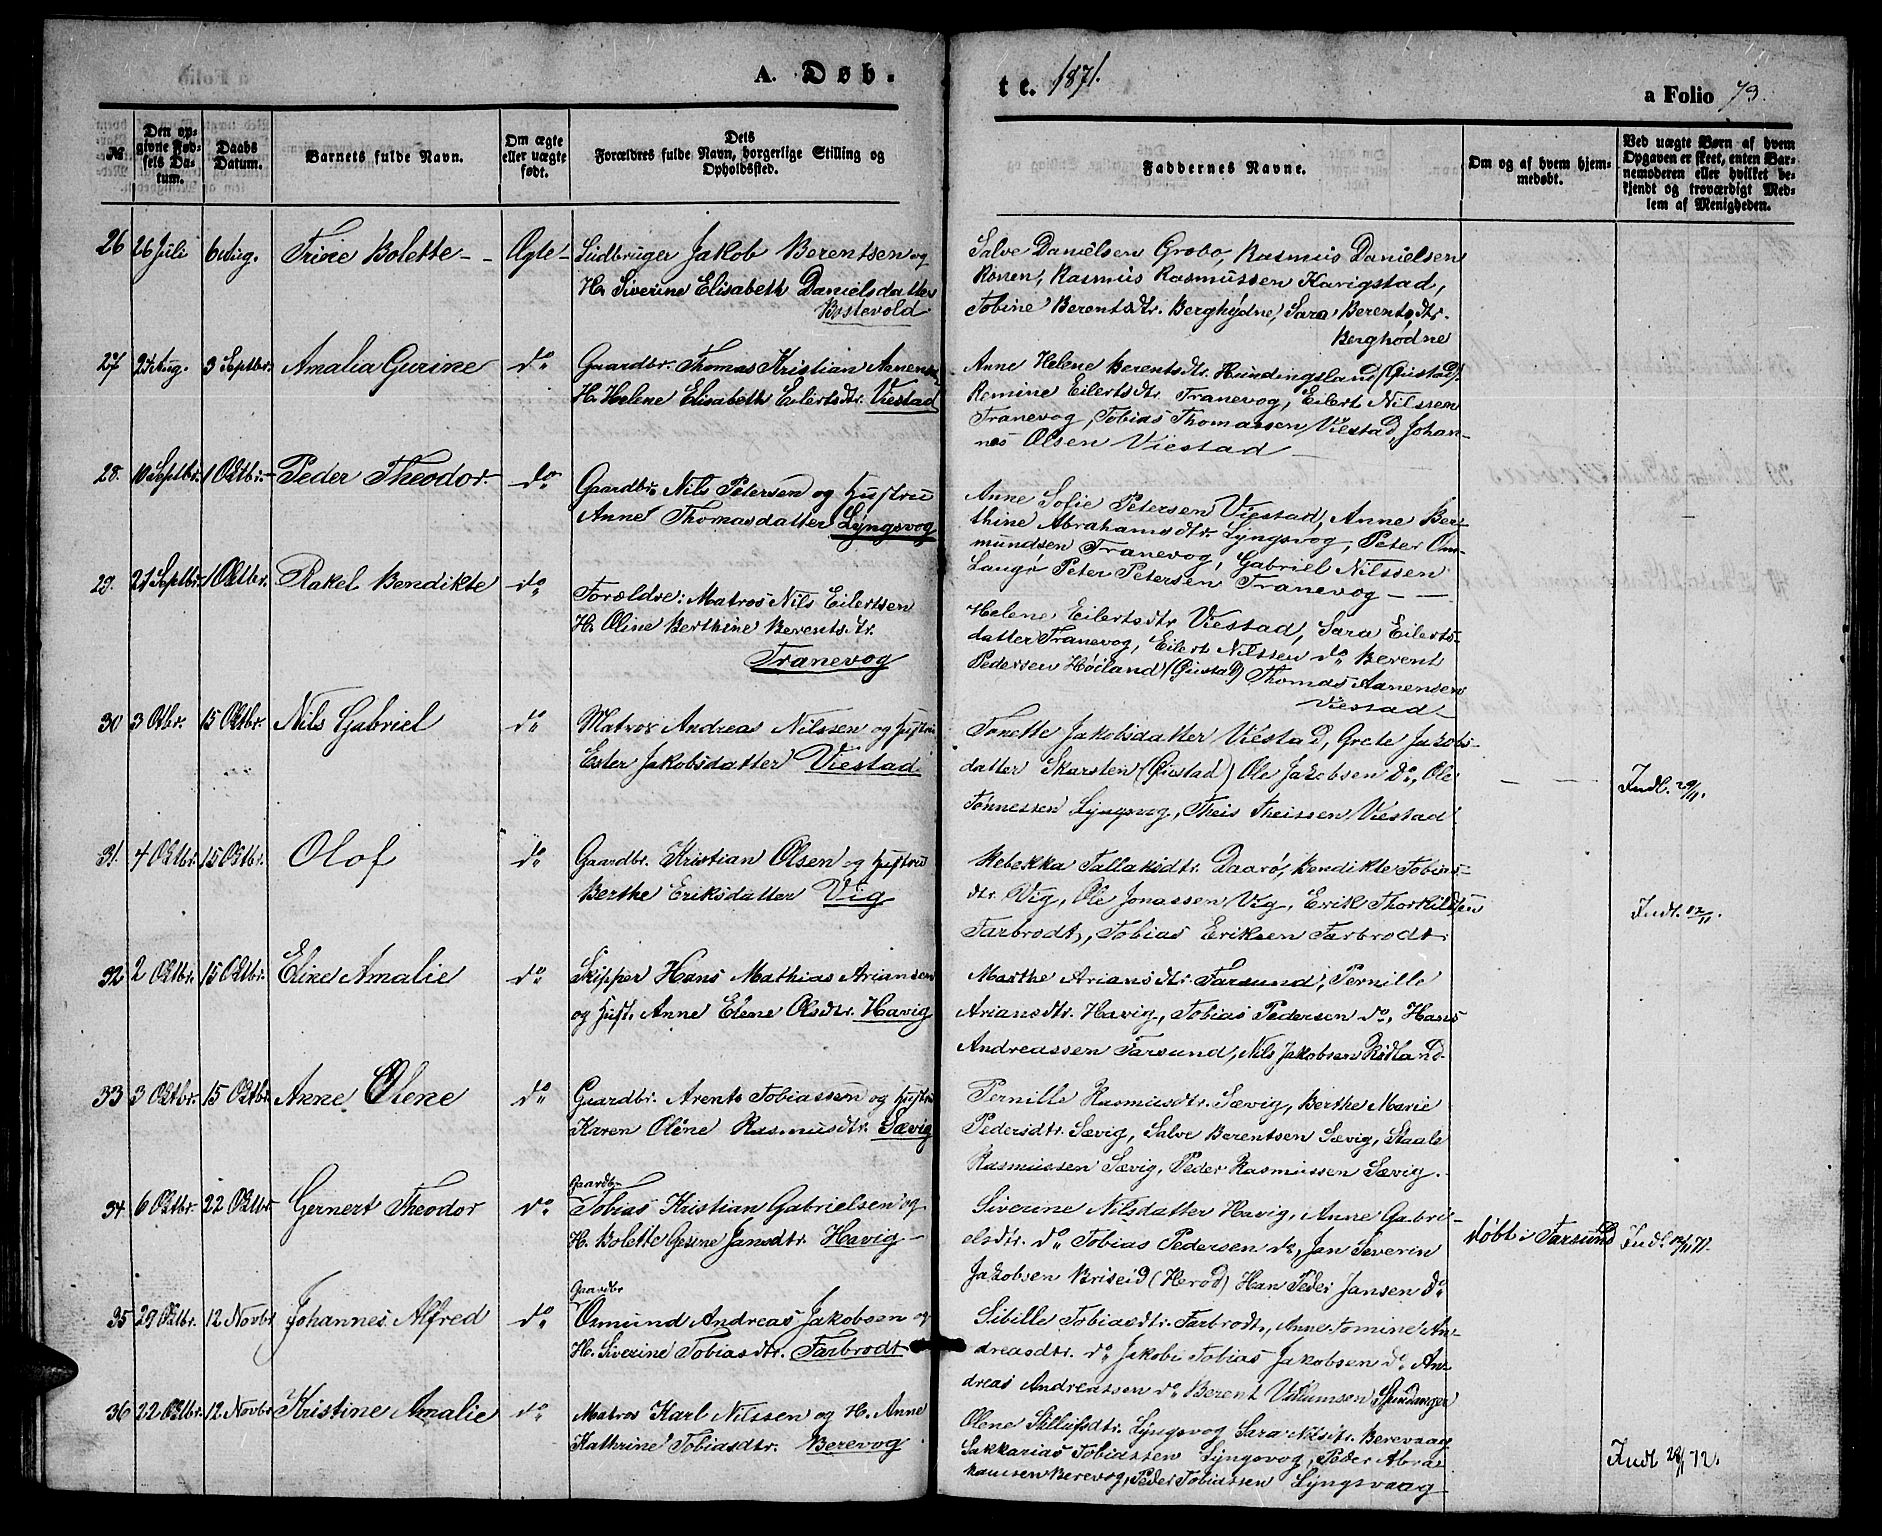 A. Døb-
te. 1871.
a Folio 73.
№
Den op-
givne Fød-
sels Da-
tum.
Daabs
Datum.
Barnets fulde Navn.
Om ægte
eller uægte
født.
Dets
Forældres fulde Navn, borgerlige Stilling og
Opholdssted.
Faddernes Navne.
Om og af hvem hjem-
medøbt.
Ved uægte Børn af hvem
Opgaven er skeet, enten Bar-
nemoderen eller hvilket be-
kjendt og troværdigt Med-
lem af Menigheden.
26 26 Juli 6 Aug. Trine Bolette - - Ægte -
Lüdbruger Jakob Berentsen og
H. Siverine Elisabeth Danielsdatter
Bostevold
Salve Danielsen Grobo, Rasmus Danielsen
Ronen, Rasmus Rasmussen Karigstad,
Tobine Berentsdtr. Berghødne, Sara Berentsdtr.
Berghødne
27 Aug. 3 Septbr. Amalia Gurine do
Gaardbr. Thomas Kristian Aanensen
H. Helene Elisabeth Eilertsdtr. Viestad
Anne Helene Berentsdtr. Hundingsland (Qvistad)
Romine Eilertsdtr Tranevog, Eilert Nilssen
Tranevog, Tobias Thomassen Viestad, Johan-
nes Olsen Viestad —
28. 10 Septbr. 1 Oktbr. - Peder Theodor. - do
Gaardbr. Nils Petersen og Hustru
Anne Thomasdatter Lyngsvog
Anne Sofie Petersen Viestad, Anne Ber-
thine Abrahamsdtr. Lyngsvog, Peter Om-
mundsen Tranevog, Gabriel Nilssen
Langø Peter Petersen Tranevog — —
29. 21 Septbr. 1 Oktbr. Rakel Bendikte do
Forældre: Matros Nils Eilertsen
H. Oline Berthine Berentsdtr.
Tranevog
Helene Eilertsdtr Viestad, Sara Eilerts-
datter Tranevog, Eilert Nilssen do Berent
Pedersen Høiland (Qvistad) Thomas Aanensen
Viestad
30 3 Otbr. 15 Oktbr. Nils Gabriel do
Matros Andreas Nilssen og Hustru
Ester Jakobsdatter Viestad
Tonette Jakobsdatter Viestad, Grete Jakobs-
datter Skarsten (Qvistad) Ole Jakobsen do, Ole
Tønnessen Lyngsvog, Theis Theissen Viestad
— — Indl. 29/11.
31. 4 Oktbr. 15 Oktbr. Olof do
Gaardbr. Kristian Olsen og Hustru
Berthe Eriksdatter Vig
Rebekka Tallaksdtr. Daarø, Bendikte Tobias-
dtr. Vig, Ole Jonassen Vig, Erik Thorkildsen
Farbrodt, Tobias Eriksen Farbrodt
Indl. 12/11.
32 2 Oktbr. 15 Oktbr. Eline Amalie do
Skipper Hans Mathias Ariansen
og Hust. Anne Elene Olsdtr. Havig
Marthe Ariansdtr Farsund, Pernille
Ariansdtr. Havig, Tobias Pedersen do, Hans
Andreassen Farsund, Nils Jakobsen Rødland
33 3 Oktbr. 15 Oktbr. Anne Olene do
Gaardbr. Arent Tobiassen og Hustru
Karen Olene Rasmusdtr. Sævig
Pernille Rasmusdtr. Sævig, Berthe Marie
Pedersdtr. Sævig, Salve Berentsen Sævig, Staale
Rasmussen Sævig, Peder Rasmussen Sævig.
34 6 Oktbr. 22 Oktbr. Gernert Theodor do
Gaardbr.
Tobias Kristian Gabrielsen og
H. Bolette Gesine Jansdtr. Havig —
Siverine Nilsdatter Havig, Anne Gabri-
elsdtr. do Tobias Pedersen do, Jan Severin
Jakobsen Briseid (Herød) Han Peder Jansen do
døbt i Farsund Indl. 12/11 71.
35 29 Oktbr. 12 Novbr Johannes Alfred do
Gaardbr
Osmund Andreas Jakobsen og
H. Siverine Tobiasdtr. Farbrodt
Sibille Tobiasdtr. Farbrodt, Anne Tomine An-
dreasdtr. do Jakob Tobias Jakobsen do An-
dreas Andreassen do Berent Villumsen
36 22 Oktbr. 12 Novbr Kristine Amalie do
Matros Karl Nilssen og H. Anne
Kathrine Tobiasdtr. Berevog
Olene Lyngsvog Sara Berevaag
Sakkarias Tobiassen Lyngsvog, Peder Abra-
hamsen Berevog, Peder Tobiassen Lyngsvaag
Indl 28/1 72.